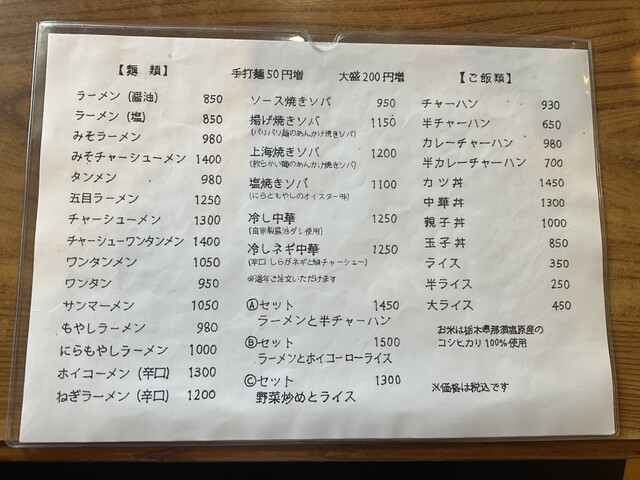 【麺 類】
ラーメン(醤油) 850
ラーメン(塩) 850
みそラーメン 980
みそチャーシューメン 1400
タンメン 980
五目ラーメン 1250
チャーシューメン 1300
チャーシューワンタンメン 1400
ワンタンメン 1050
ワンタン 950
サンマーメン 1050
もやしラーメン 980
にらもやしラーメン 1000
ホイコーメン(辛口) 1300
ねぎラーメン(辛口) 1200
手打麺50円増 大盛200円増
ソース焼きソバ 950
揚げ焼きソバ 1150
(パリパリ麺のあんかけ焼きソバ)
上海焼きソバ 1200
(軟らかい麺のあんかけ焼きソバ)
塩焼きソバ 1100
(にらともやしのオイスター味)
冷し中華 1250
(自家製醤油ダレ使用)
冷しネギ中華 1250
(辛口 しらがネギと細チャーシュー)
※通年ご注文いただけます
Ⓐセット 1450
ラーメンと半チャーハン
Ⓑセット 1500
ラーメンとホイコーローライス
Ⓒセット 1300
野菜炒めとライス
【ご飯類】
チャーハン 930
半チャーハン 650
カレーチャーハン 980
半カレーチャーハン 700
カツ丼 1450
中華丼 1300
親子丼 1000
玉子丼 850
ライス 350
半ライス 250
大ライス 450
お米は栃木県那須塩原産の
コシヒカリ100%使用
※価格は税込です